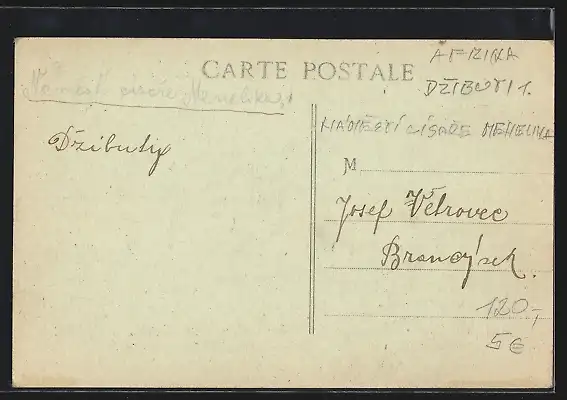 CARTE POSTALE
AFRIKA
DŽIBUTI 1.
Náměstí císaře Menelika
NÁMĚSTÍ CÍSAŘE MENELIKA
Džibuty
M
Josef Větrovec
Brandýsek.
120,-
5€